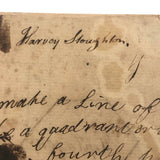 Harvey Stoughton
make a Line of
a quadrant or
fourth